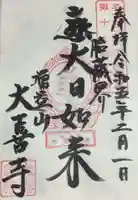 奉拝 令和五年二月一日
胎蔵界
大日如来
福智山
大喜寺
第十